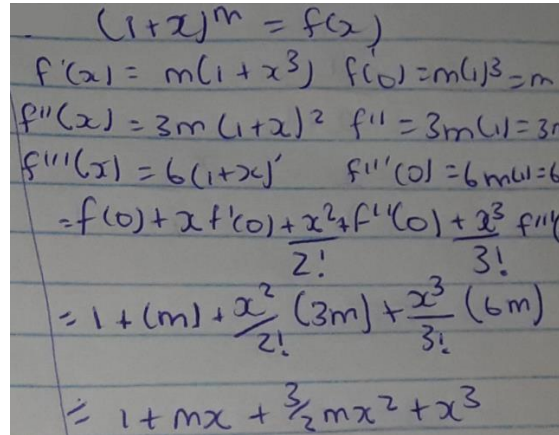 (1+x)^m = f(x)
f'(x) = m(1+x³) f'(0) = m(1)³ = m
f''(x) = 3m(1+x)² f'' = 3m(1) = 3
f'''(x) = 6(1+x)' f'''(0) = 6m(1) = 6
= f(0) + x f'(0) + x²/2! + f''(0) + x³/3! f'''(
= 1 + (m) + x²/2! (3m) + x³/3! (6m)
= 1 + mx + 3/2 mx² + x³